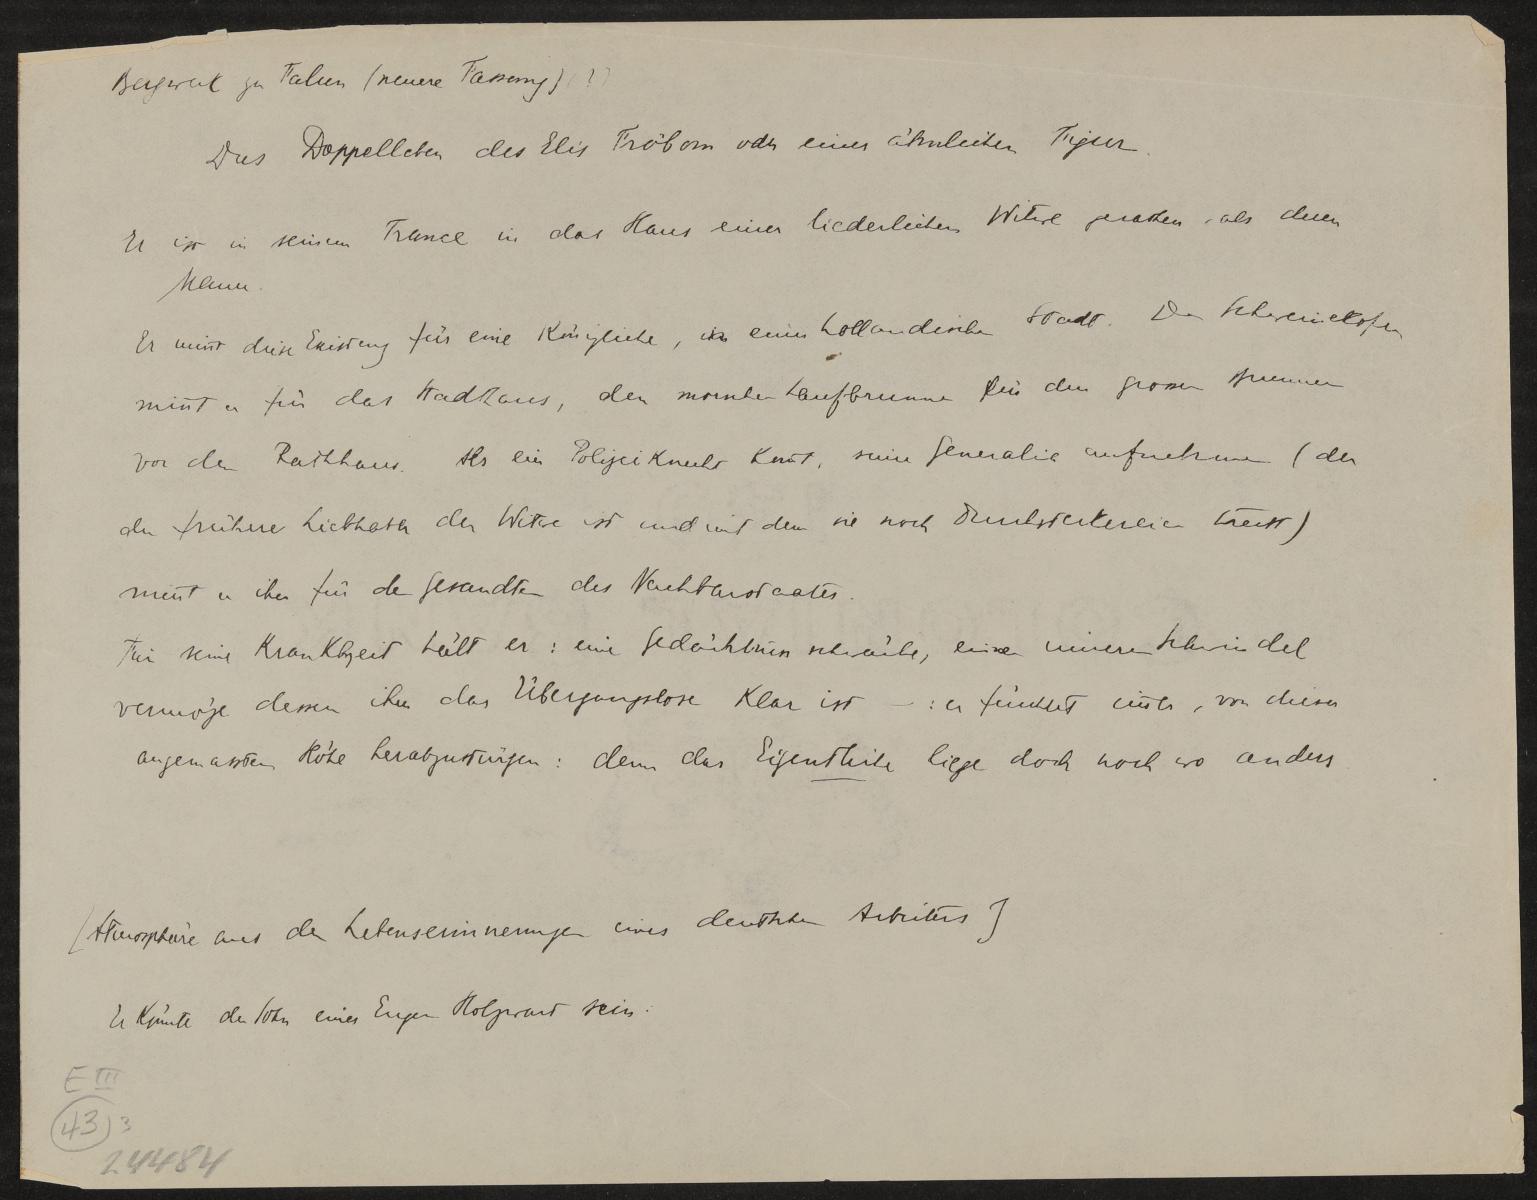 Bergwerk zu Falun (neuere Fassung) (?)
Das Doppelleben des Elis Fröbom oder einer ähnlichen Figur.
Er ist in seinem Trance in das Haus einer liederlichen Witwe geraten als deren
Mann.
Er nimt diese Existenz für eine Königliche, in einer holländischen Stadt. Den Schweinekofen
nimt er für das Stadthaus, den morschen Laufbrunnen für den grossen Brunnen
vor dem Rathhaus. Als ein Polizeiknecht komt, seine Generalia aufnehmen (der
der frühere Liebhaber der Witwe ist und mit dem sie noch Durchsteckereien treibt)
nimt er ihn für den Gesandten des Nachbarstaates.
Für seine Krankheit hält er: eine Gedächtnisschwäche, einen inneren Schwindel
vermöge dessen ihm das Übergangslose klar ist — : er fürchtet immer, von dieser
angemassten Höhe herabzustürzen: denn das Eigentliche liege doch noch wo anders
[Atmosphäre aus den Lebenserinnerungen eines deutschen Arbeiters]
Er könnte der Sohn eines Eugen Holzwart sein.
E III
43 3
24484